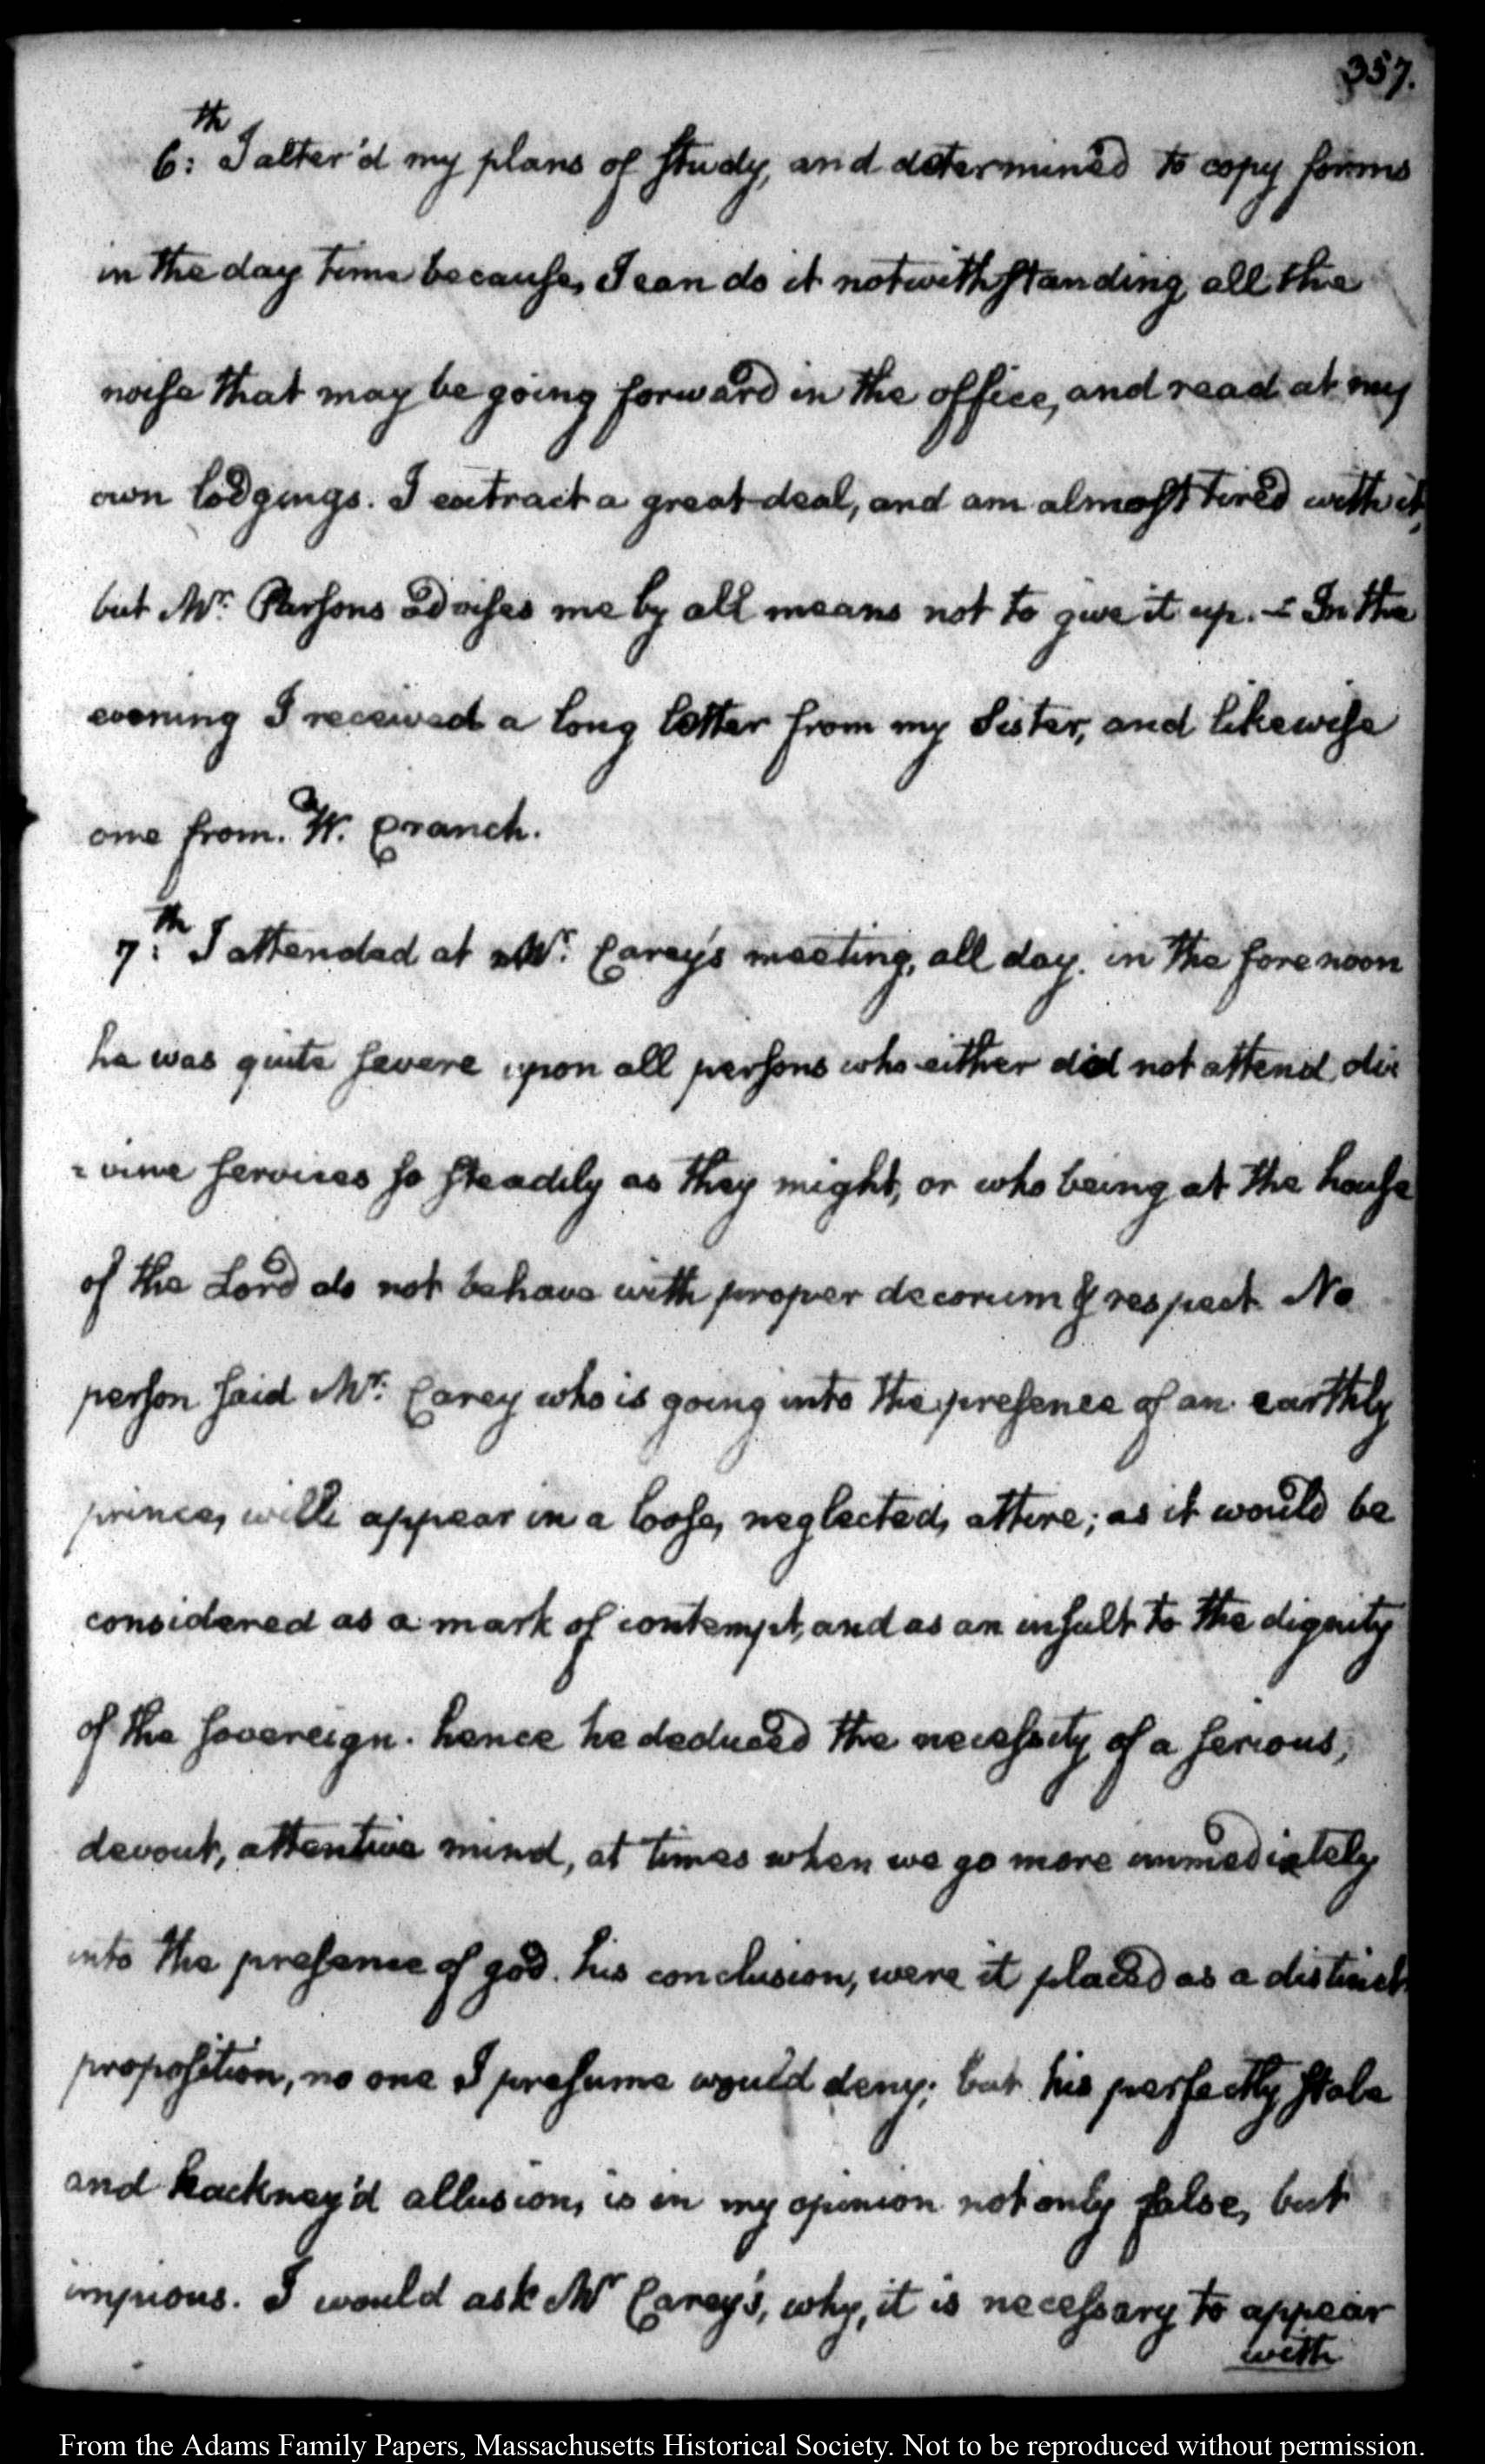 357.
6:th I alter'd my plans of study, and determined to copy forms
in the day time because, I can do it notwithstanding all the
noise that may be going forward in the office, and read at my
own lodgings. I extract a great deal, and am almost tired with it,
but Mr. Parsons advises me by all means not to give it up. - In the
evening I received a long letter from my Sister, and likewise
one from W. Cranch.
7:th I attended at Mr. Carey's meeting, all day. in the forenoon
he was quite severe upon all persons who either did not attend di-
-vine services so steadily as they might, or who being at the house
of the Lord do not behave with proper decorum & respect. No
person said Mr. Carey who is going into the presence of an earthly
prince, will appear in a loose, neglected, attire; as it would be
considered as a mark of contempt, and as an insult to the dignity
of the sovereign. hence he deduced the necessity of a serious,
devout, attentive mind, at times when we go more immediately
into the presence of god. his conclusion, were it placed as a distinct
proposition, no one I presume would deny; but his perfectly stale
and hackney'd allusion, is in my opinion not only false, but
impious. I would ask Mr Carey's, why, it is necessary to appear
with
From the Adams Family Papers, Massachusetts Historical Society. Not to be reproduced without permission.